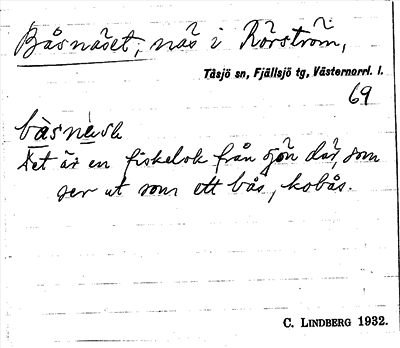 Båsnäset, näs i Rörström,
Tåsjö sn, Fjällsjö tg, Västernorrl. l.
69
Det är en fiskelok från sjön där, som
ser ut som ett bås, kobås.
C. LINDBERG 1932.